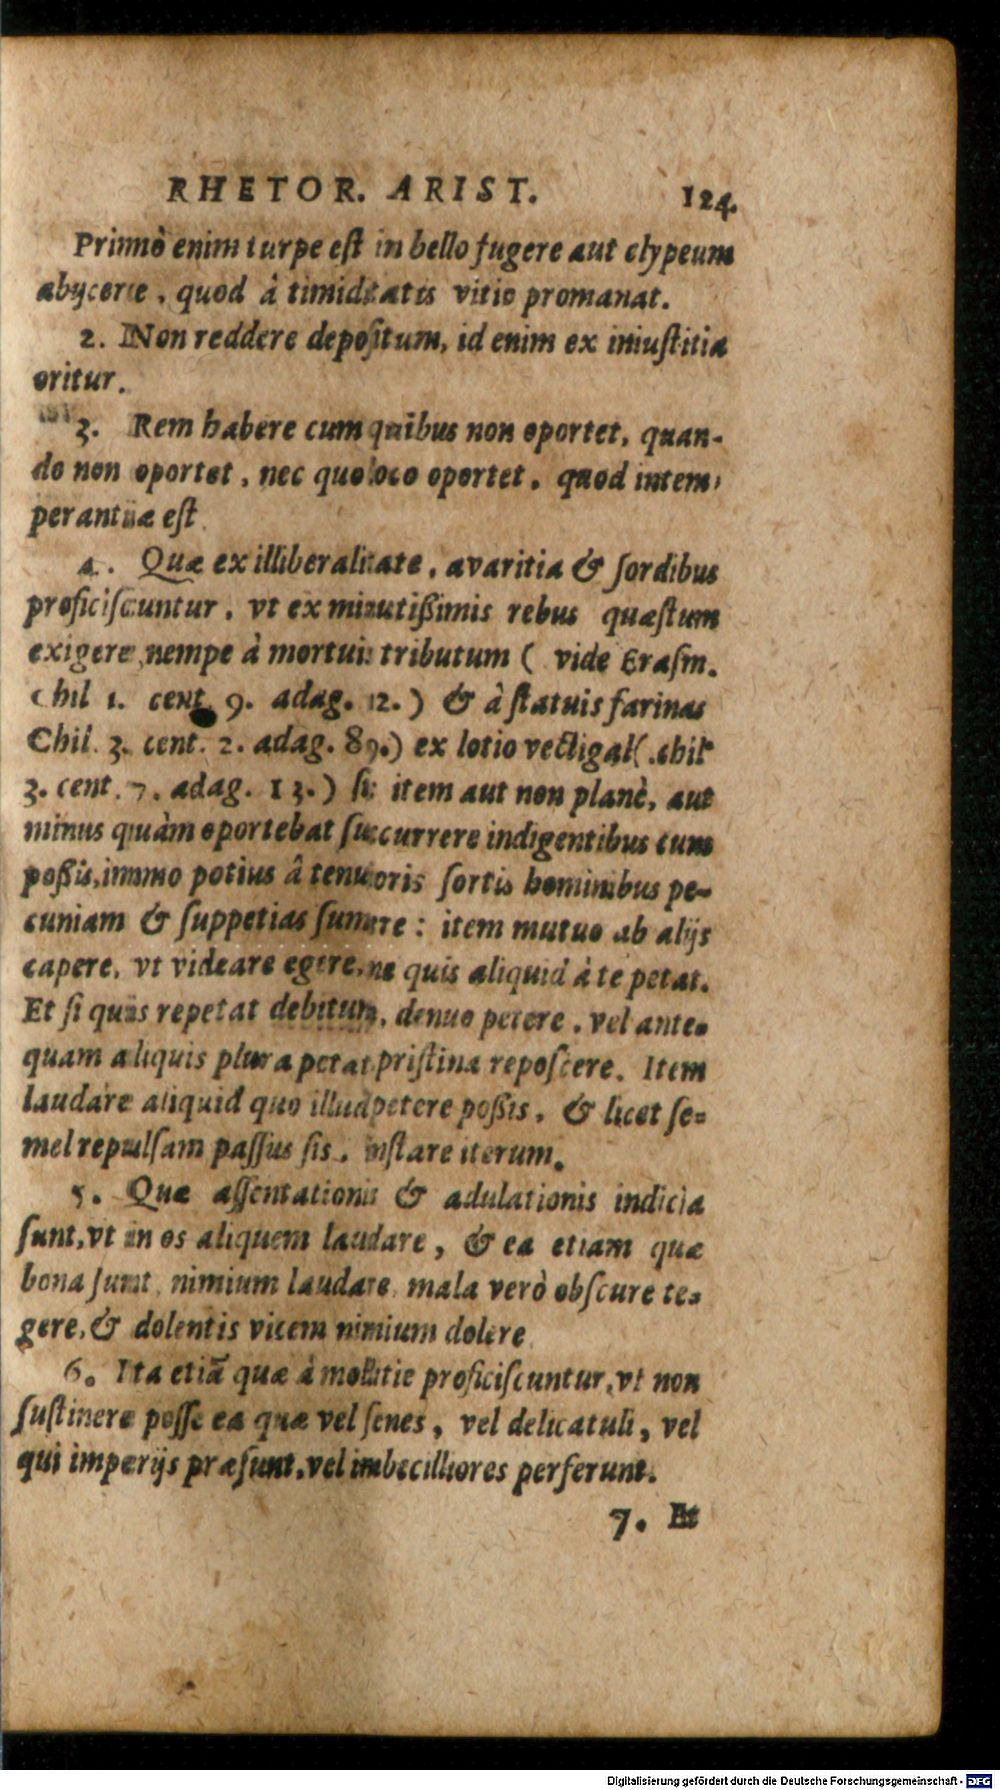 RHETOR. ARIST. 124.
Primò enim turpe eſt in bello fugere aut clypeum
abijcere, quod à timiditatis vitio promanat.
2. Non reddere depoſitum, id enim ex iniuſtitia
oritur.
3. Rem habere cum quibus non oportet, quan-
do non oportet, nec quo loco oportet, quod intem-
perantiæ eſt.
4. Quæ ex illiberalitate, avaritia & ſordibus
proficiſcuntur, vt ex minutißimis rebus quæſtum
exigere, nempe à mortuis tributum ( vide Eraſm.
Chil 1. cent. 9. adag. 12.) & à ſtatuis farinas
Chil. 3. cent. 2. adag. 89.) ex lotio vectigal (.chil
3. cent. 7. adag. 13.) ſi: item aut non planè, aut
minus quàm oportebat ſuccurrere indigentibus cum
poßis, immo potius â tenuioris ſortis hominibus pe-
cuniam & ſuppetias ſumere: item mutuo ab alijs
capere, vt videare egere, ne quis aliquid à te petat.
Et ſi quis repetat debitum, denuo petere, vel ante-
quam aliquis plura petat, priſtina repoſcere. Item
laudare aliquid quo illud petere poßis, & licet ſe-
mel repulſam paſſus ſis, inſtare iterum.
5. Quæ aſſentationis & adulationis indicia
ſunt, vt in os aliquem laudare, & ea etiam quæ
bona ſunt, nimium laudare, mala verò obſcure te-
gere, & dolentis vicem nimium dolere.
6. Ita etiã quæ à mollitie proficiſcuntur, vt non
ſuſtinere poſſe ea quæ vel ſenes, vel delicatuli, vel
qui imperijs præſunt, vel imbecilliores perferunt.
7. Et
Digitalisierung gefördert durch die Deutsche Forschungsgemeinschaft - DFG